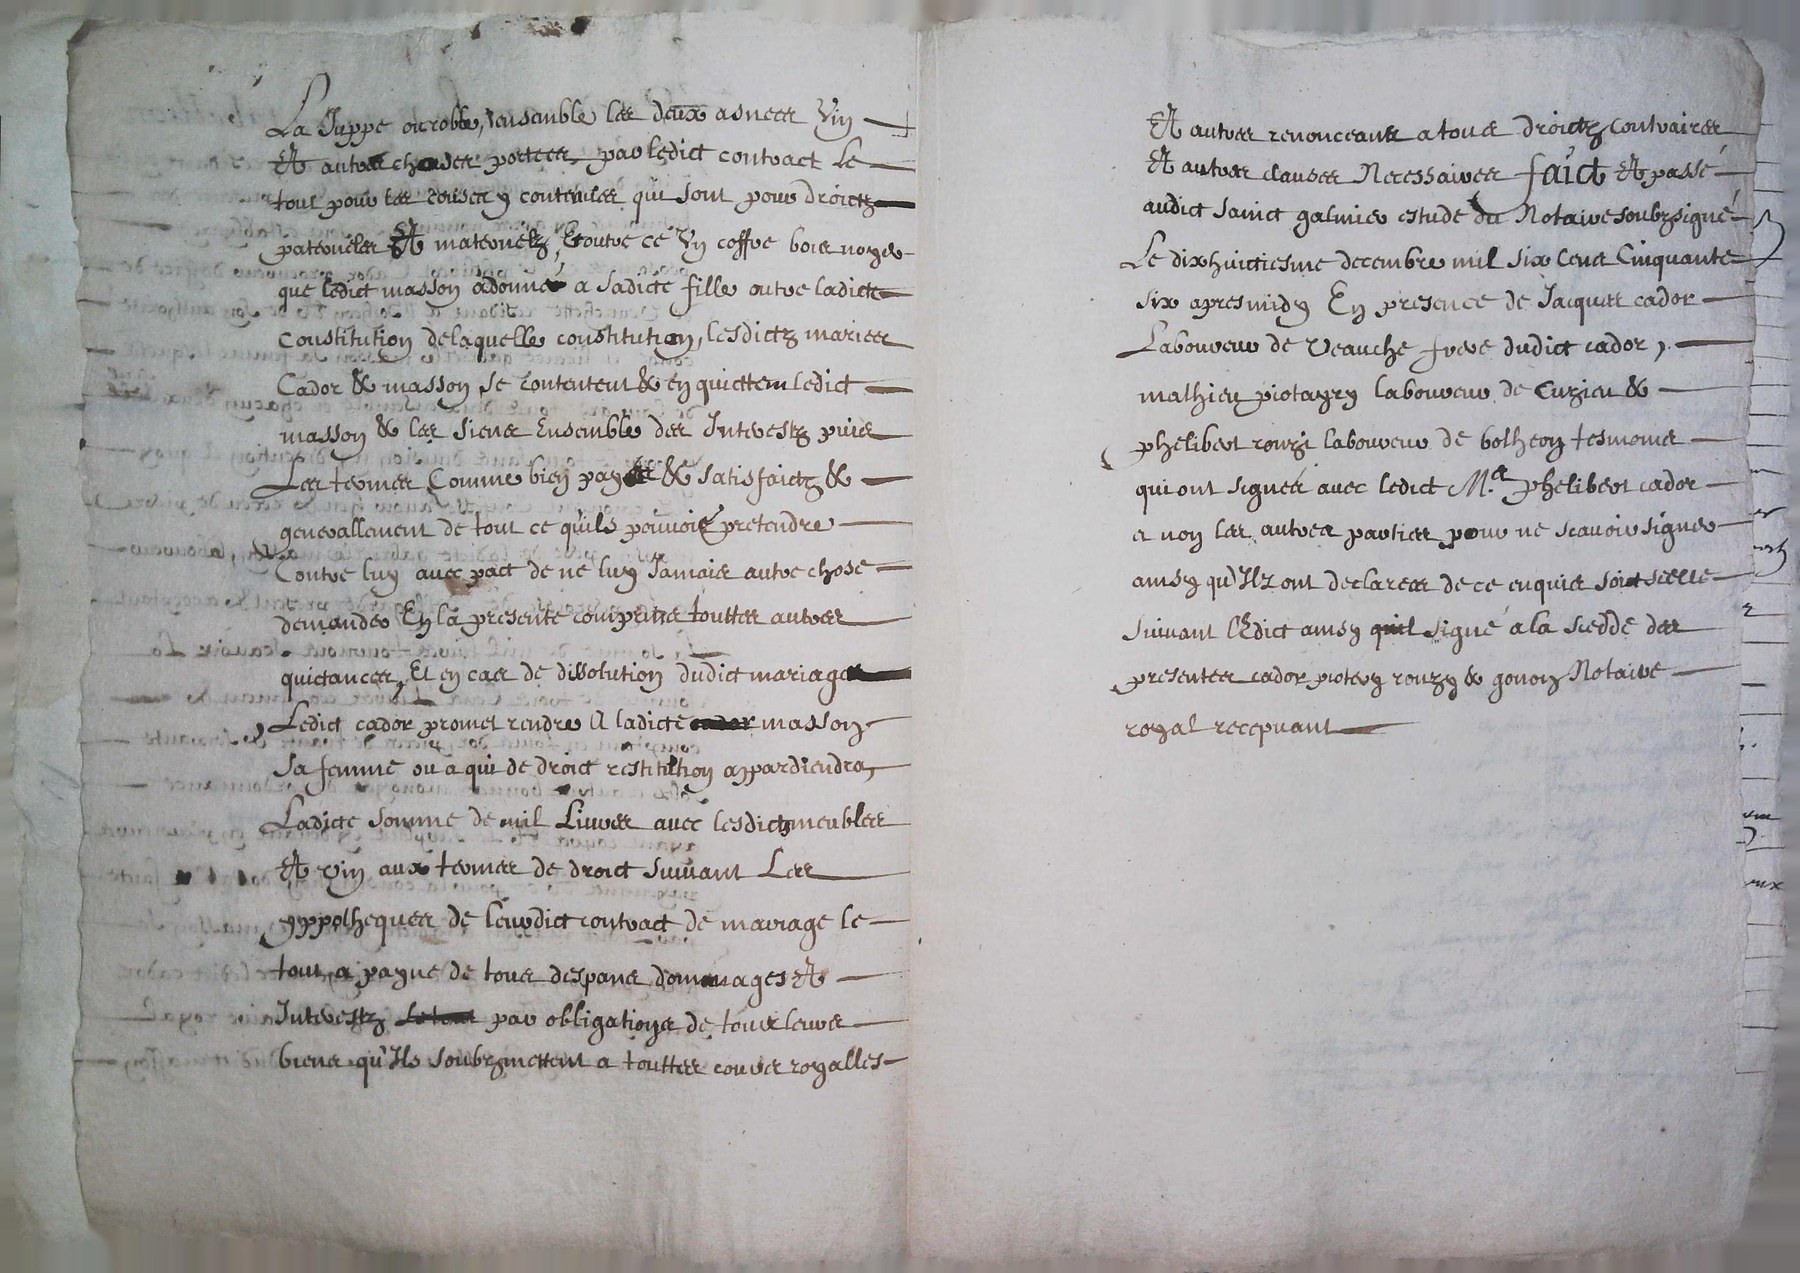 La Juppe ou robbe, ensemble les deux asnees vin
Et autres choses portees par ledict contract Le
tout pour les causes y contenues qui sont pour droictz
paternelz Et maternelz, & outre ce Vn coffre bois noyer
que ledict masson a donné a sadicte fille outre ladicte
Constitution delaquelle constitution, lesdictz maries
Cador & masson se contentent & en quictent ledict
masson & les siens Ensemble des Interestz puis
Les termes Comme bien payés & satisfaictz &
generallement de tout ce quils pouvoit pretendre
Contre luy avec pact de ne luy Jamais autre chose
demander En la presente comprins touttes autres
quictances, Et en cas de dissolution dudict mariage
Ledict cador promet rendre A ladicte cador masson
sa femme ou a qui de droict restitution appardiendra,
Ladicte somme de mil Livres avec lesdictz meubles
Et vin aux termes de droict suivant Les
yppotheques de leurdict contract de mariage le
tout a payne de tous despans dommages Et
Interestz Le tout par obligations de tous leurs
biens qu'Ilz soubzmettent a touttes cours royalles
Et autres renonceant a tous droictz contraires
Et autres clauses Necessaires faict Et passé
audict sainct galmier estude du Notaire soubzsigné
Le dixhuictiesme decembre mil six cens Cinquante
six apres midy En presence de Jacques cador
Laboureur de Veauche frere dudict cador,
mathieu piotayry laboureur de Cuzieu &
phelibert rouzi laboureur de botheon tesmoins
qui ont signés avec ledict M.e phelibert cador
et non les autres parties pour ne scavoir signer
ainsy qu'Ilz ont declarees de ce enquis soict scellé
suivant l'Edict ainsy quil signé a la scedde des
presentes cador piotery rouzy & gonon Notaire
royal recepvant